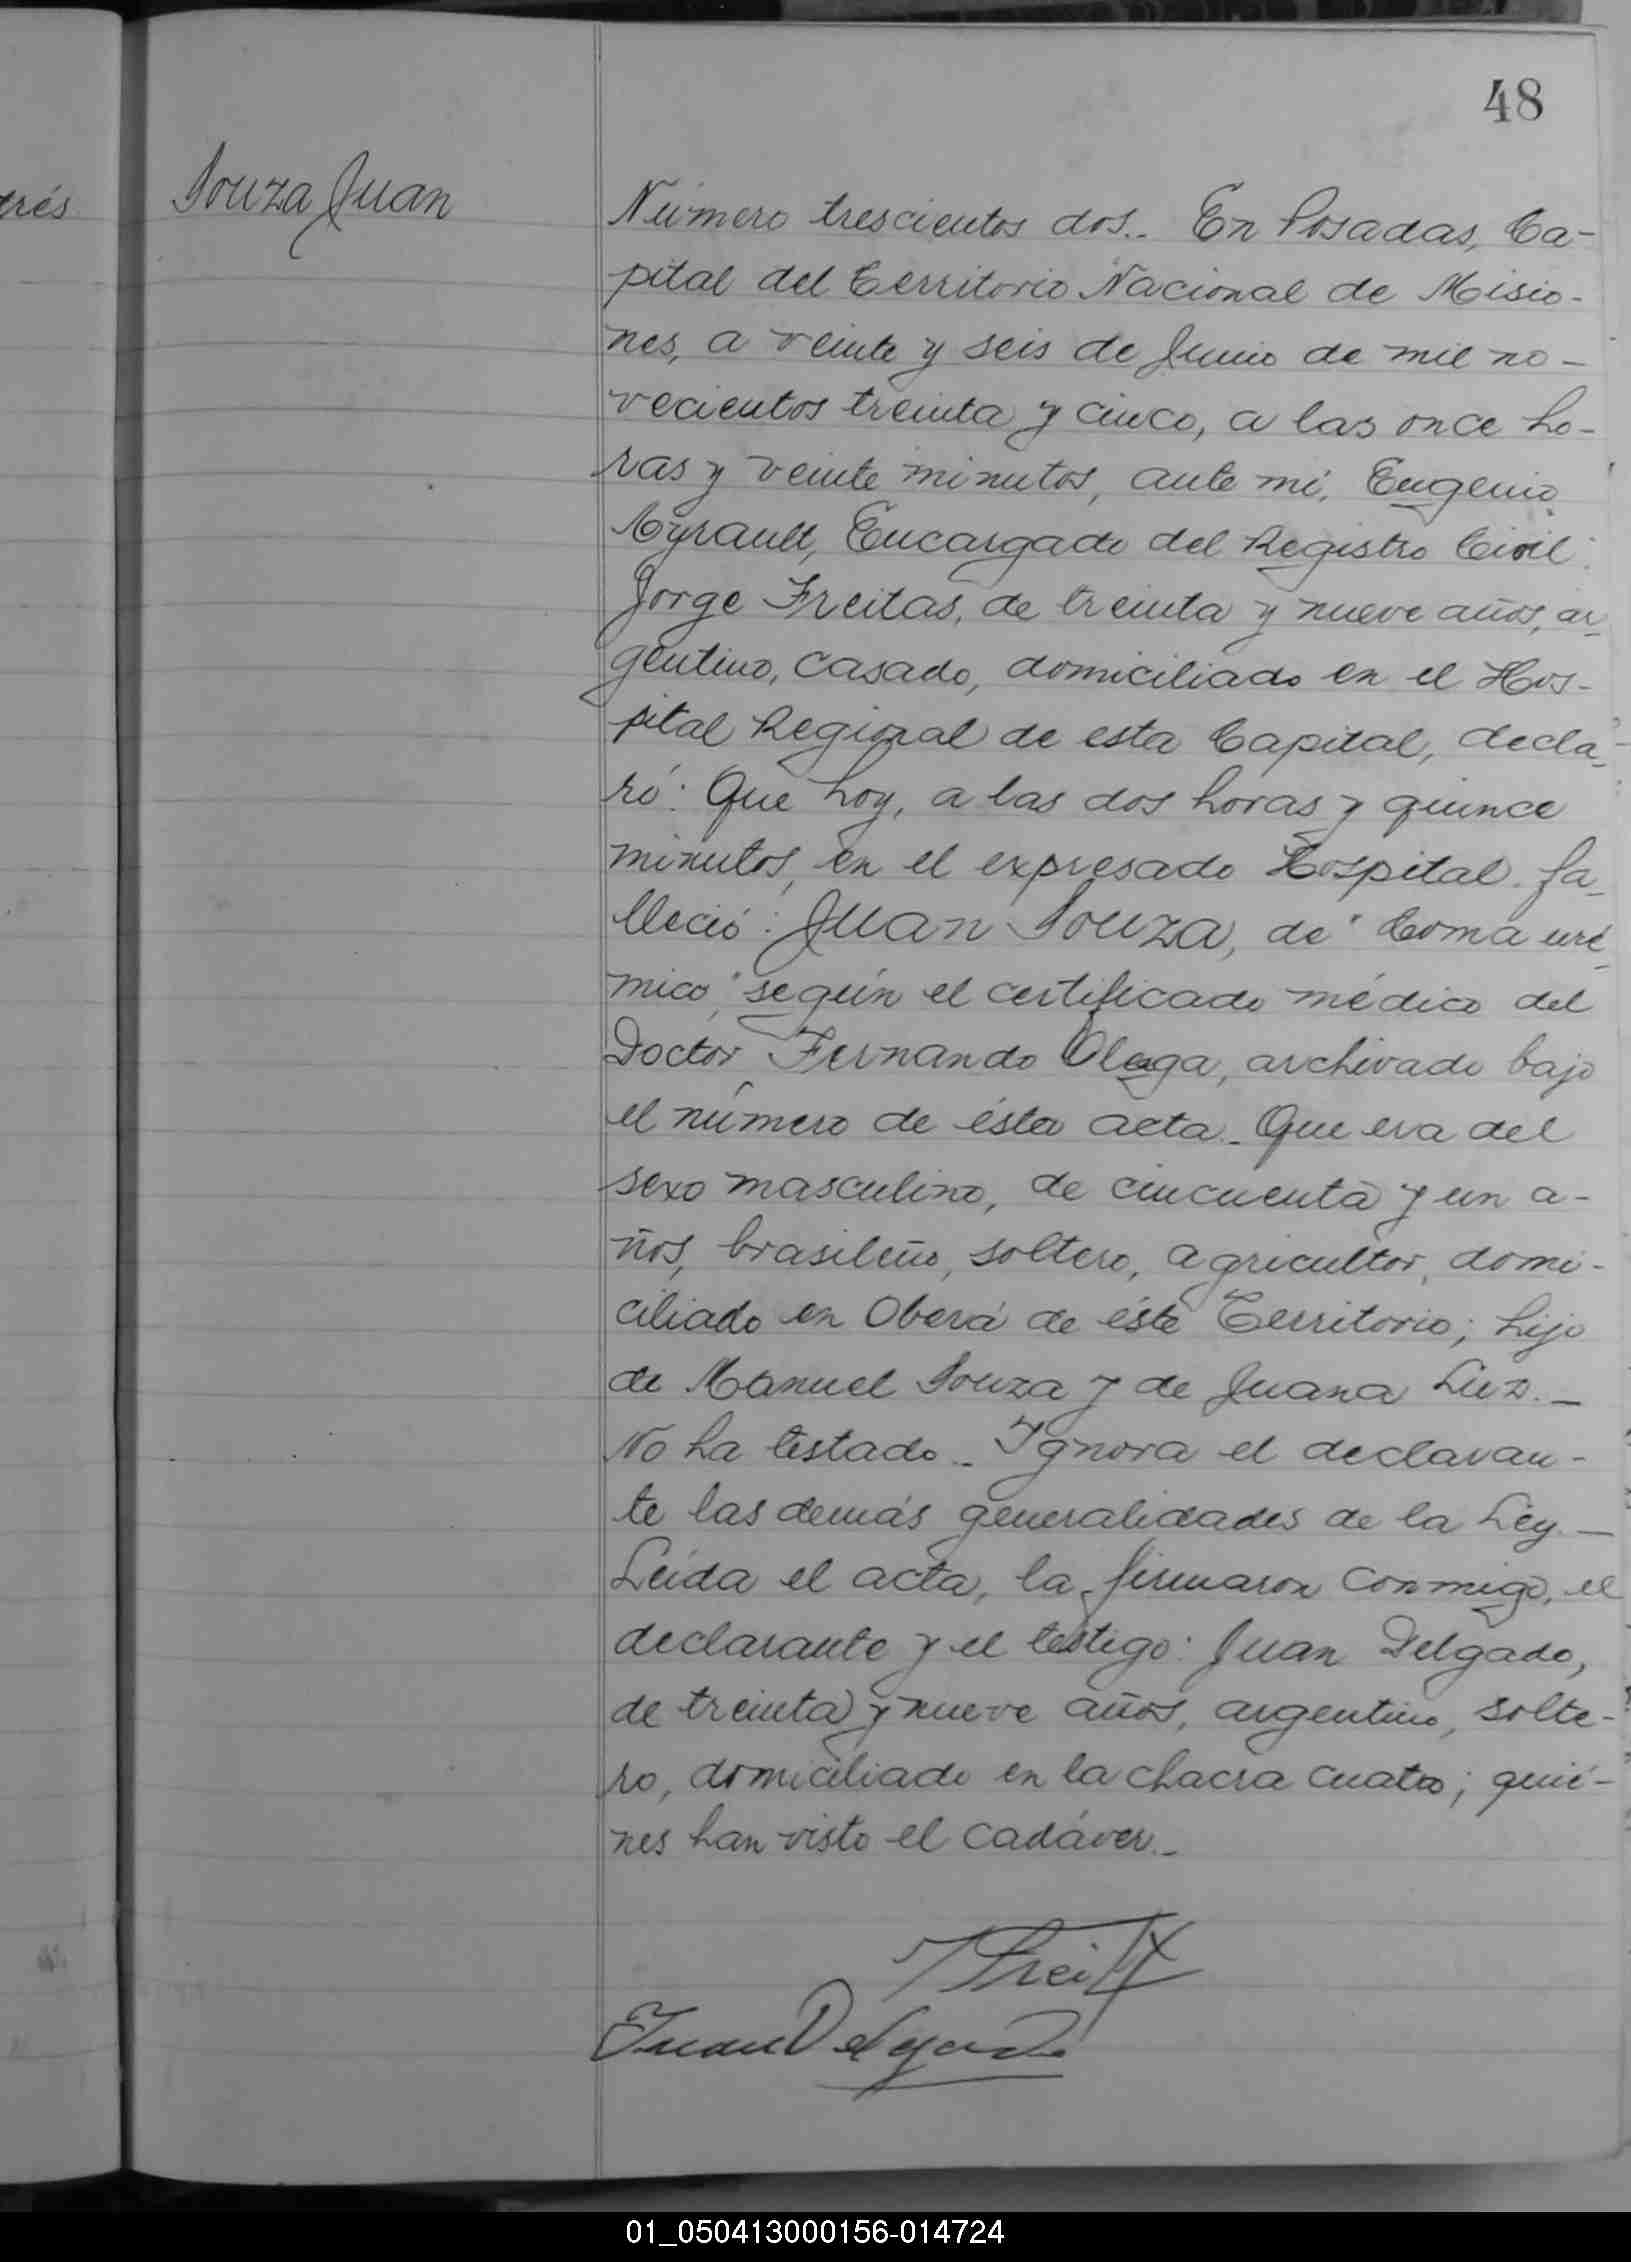 48
trés
Souza Juan
Número trescientos dos.- En Posadas, Ca-
pital del Territorio Nacional de Misio-
nes, a veinte y seis de Junio de mil no-
vecientos treinta y cinco, a las once ho-
ras y veinte minutos, ante mí, Eugenio
Ayrault, Encargado del Registro Civil:
Jorge Freitas, de treinta y nueve años, ar-
gentino, casado, domiciliado en el Hos-
pital Regional de esta Capital, decla-
ró: Que hoy, a las dos horas y quince
minutos, en el expresado Hospital fa-
lleció: Juan Souza, de "Coma uré-
mico," según el certificado médico del
Doctor Fernando Olaga, archivado bajo
el número de ésta acta.- Que era del
sexo masculino, de cincuenta y un a-
ños, brasileño, soltero, agricultor, domi-
ciliado en Oberá de éste Territorio; hijo
de Manuel Souza y de Juana Luz.-
No ha testado.- Ignora el declaran-
te las demás generalidades de la Ley.-
Leída el acta, la firmaron conmigo, el
declarante y el testigo: Juan Delgado,
de treinta y nueve años, argentino, solte-
ro, domiciliado en la chacra cuatro; quié-
nes han visto el cadáver.-
Juan Delgado
01_050413000156-014724